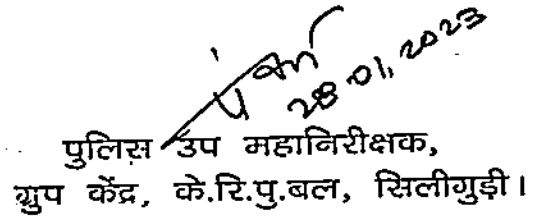 28.01.2023
पुलिस उप महानिरीक्षक,
ग्रुप केंद्र, के.रि.पु.बल, सिलीगुड़ी।